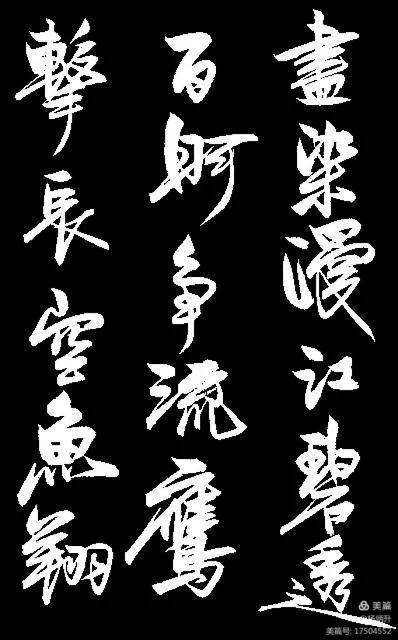 盡染漫江碧透
百舸争流鷹
擊長空魚翔
美篇
美篇号: 17504552